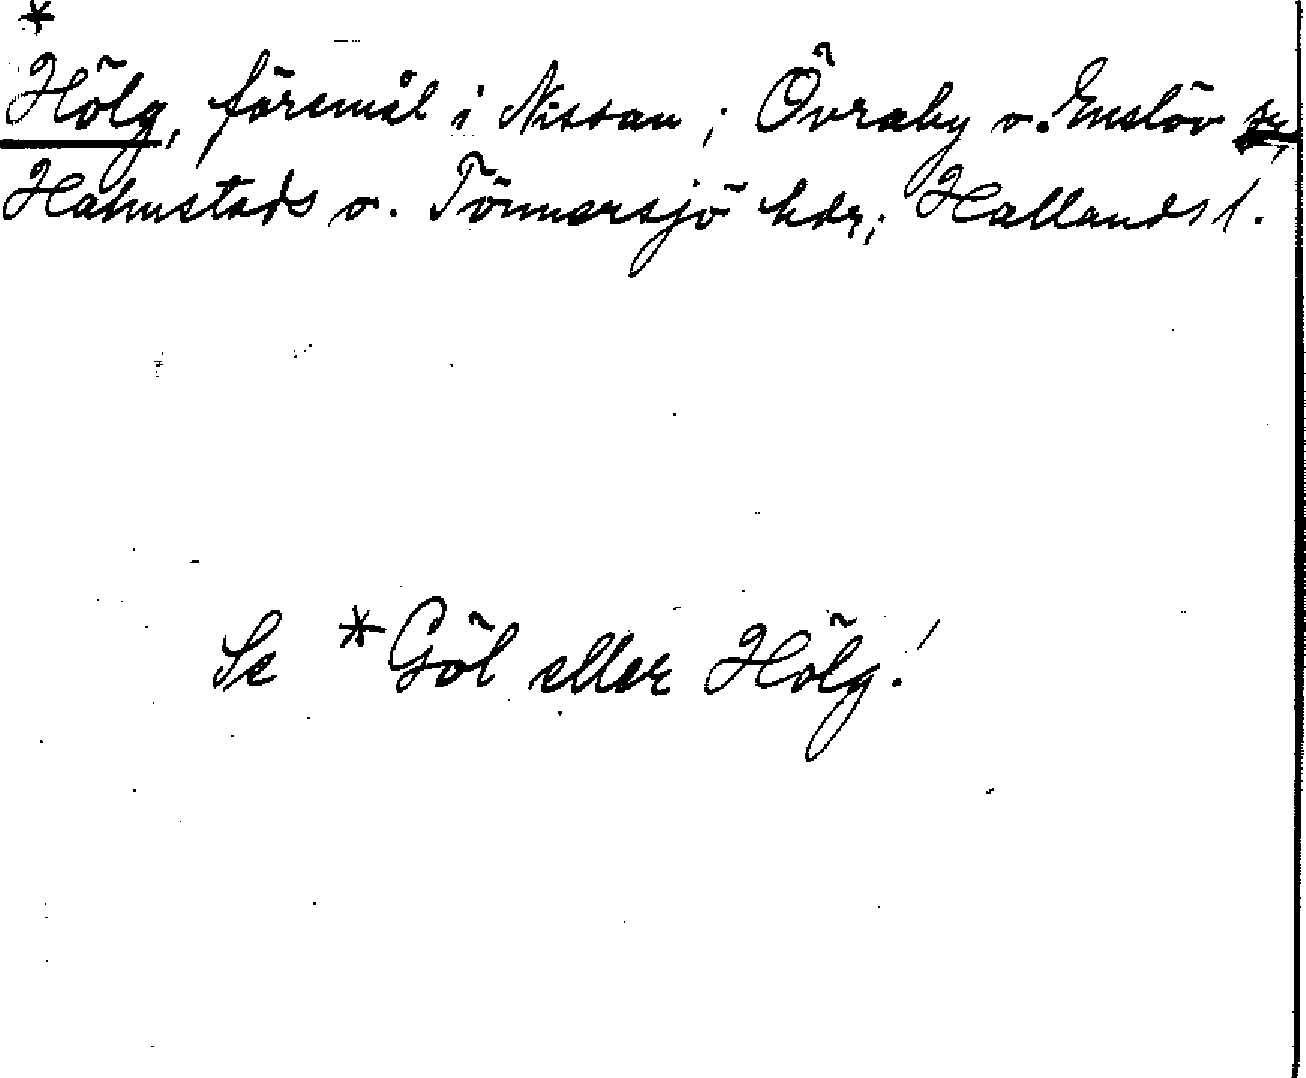 *
Hölg, föremål i Nissan; Övraby o. Enslöv sr,
Halmstads o. Tönnersjö hdr; Hallands l.
Se *Göl eller Hölg!